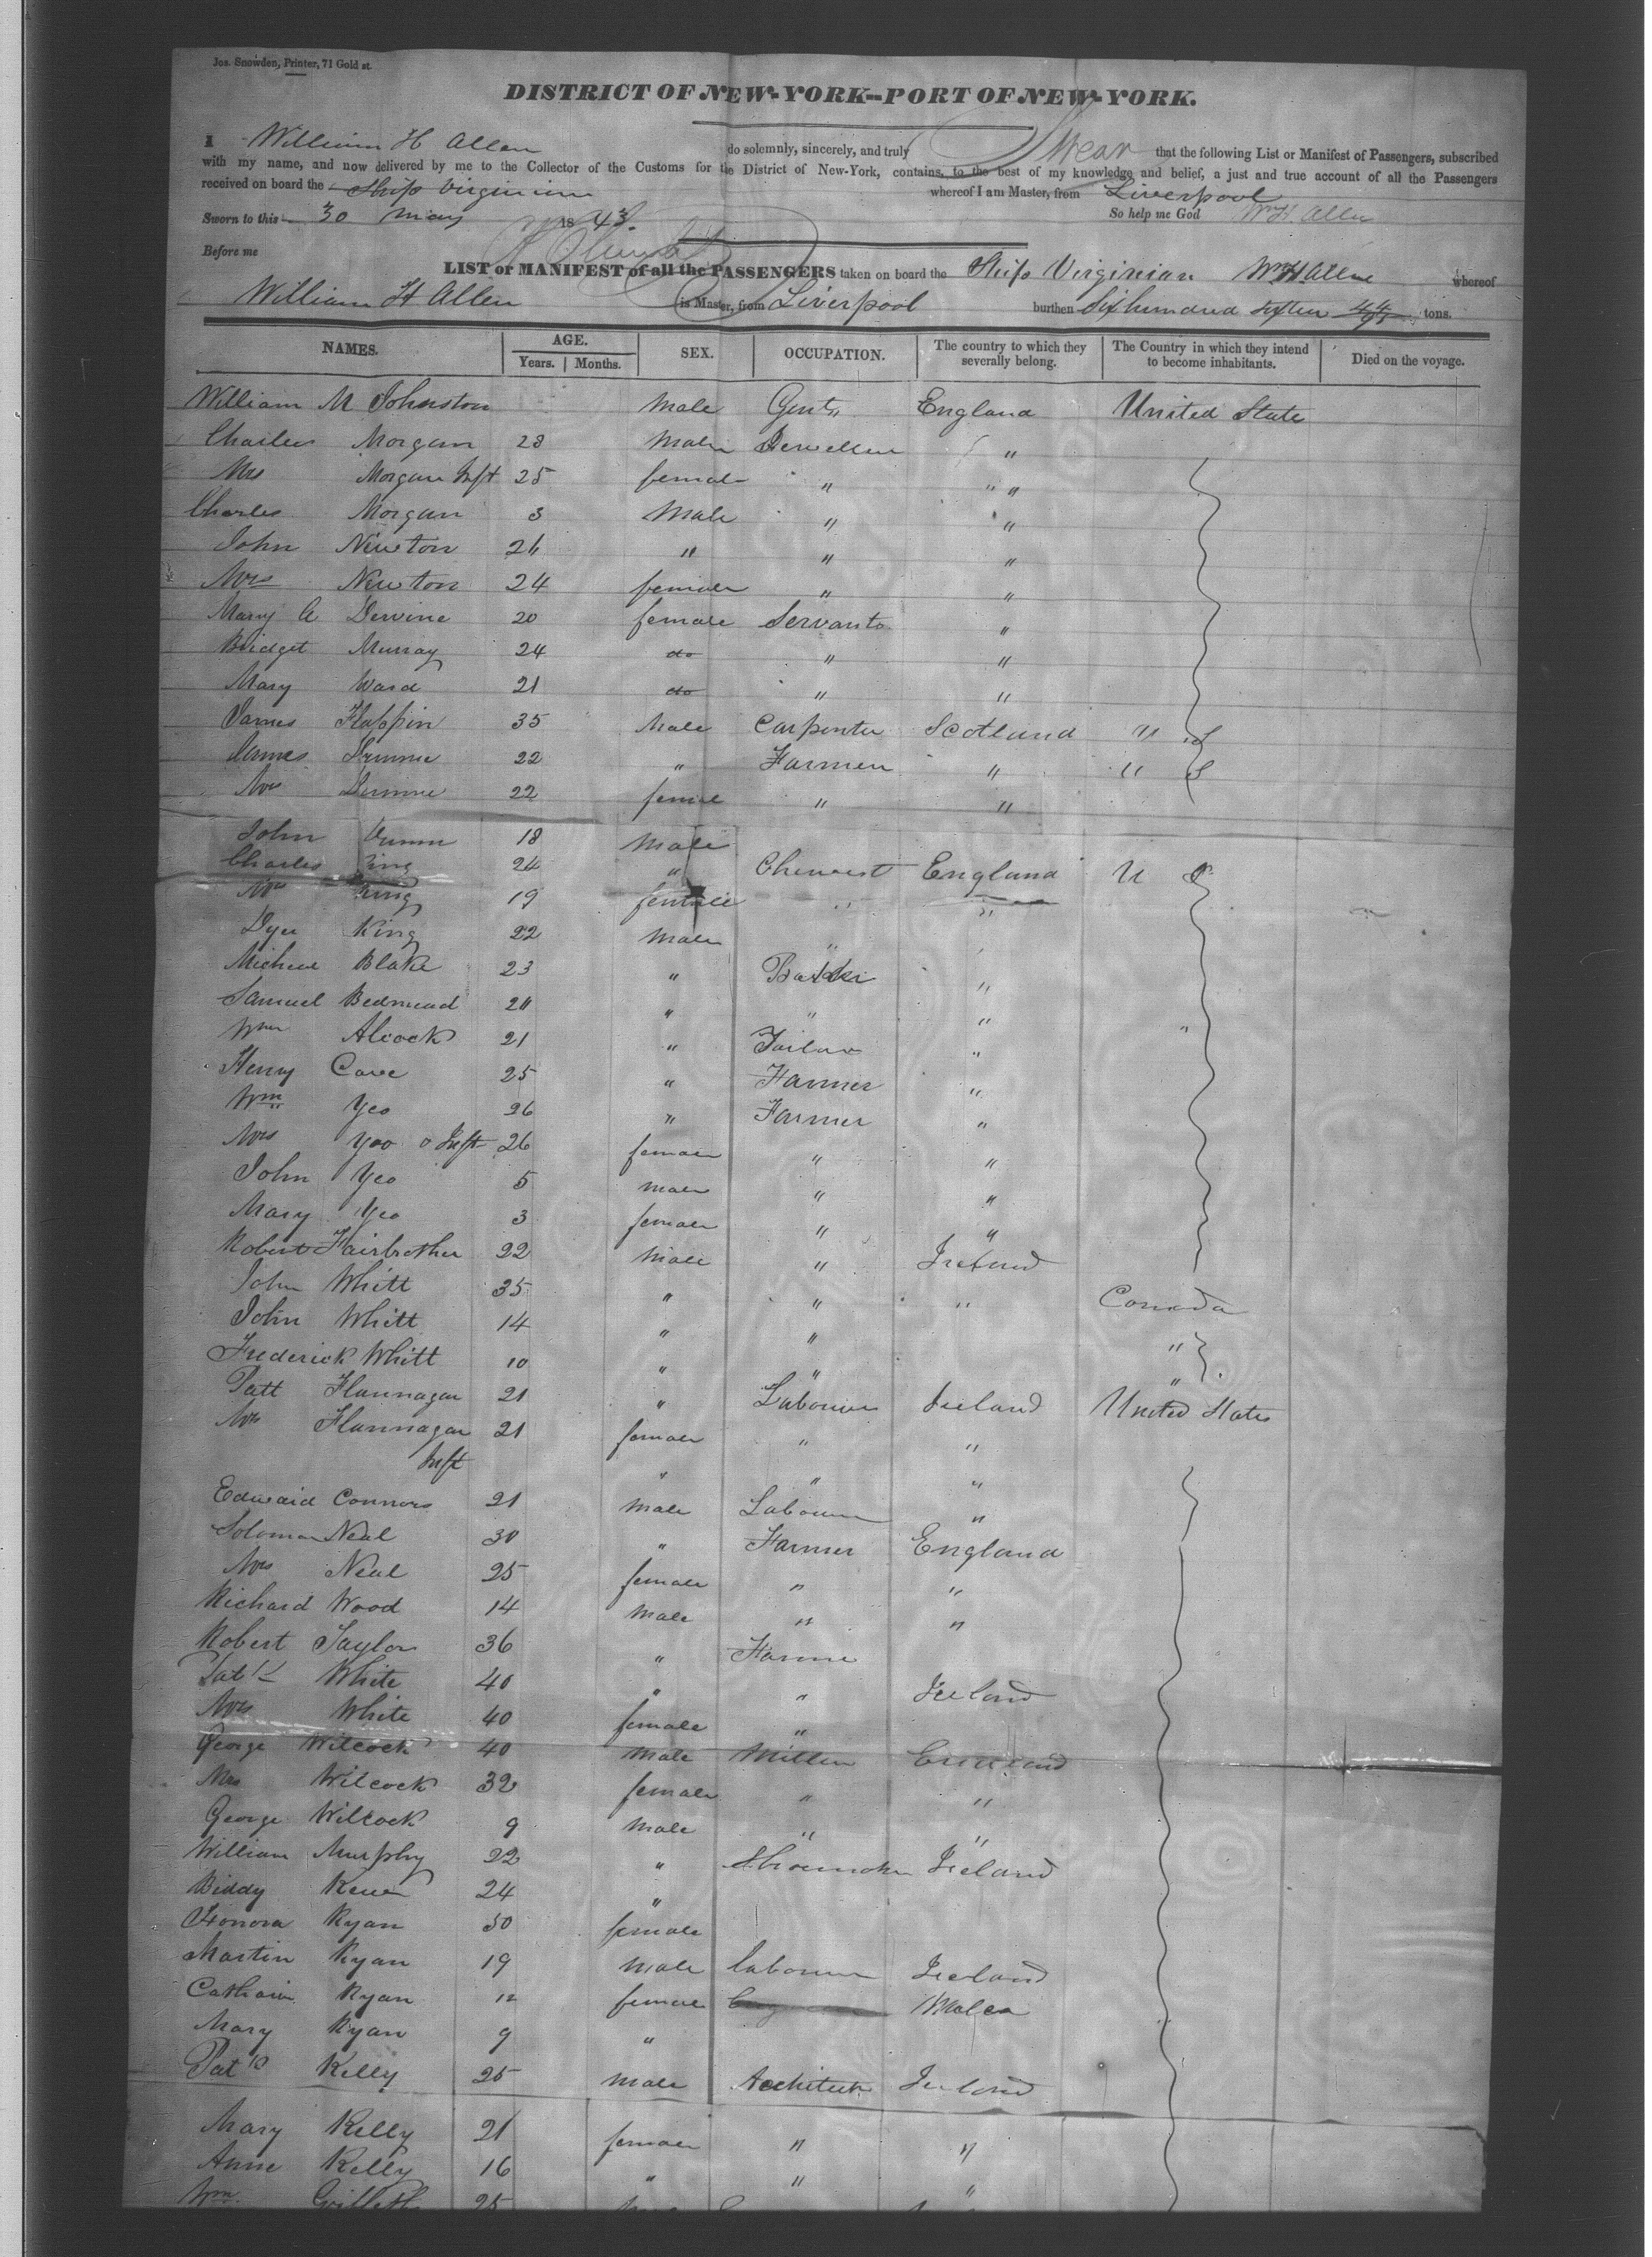 Jos. Snowden, Printer, 71 Gold st.
DISTRICT OF NEW-YORK--PORT OF NEW-YORK.
I William H Allen do solemnly, sincerely, and truly Swear that the following List or Manifest of Passengers, subscribed
with my name, and now delivered by me to the Collector of the Customs for the District of New-York, contains, to the best of my knowledge and belief, a just and true account of all the Passengers
received on board the Ship Virginian whereof I am Master, from Liverpool
Sworn to this 30 May 18 43. So help me God Wm H Allen
Before me
LIST or MANIFEST of all the PASSENGERS taken on board the Ship Virginian Wm H Allen whereof
William H Allen is Master, from Liverpool burthen Six hundred Sixteen 44/95 tons.
NAMES. AGE. SEX. OCCUPATION. The country to which they severally belong. The Country in which they intend to become inhabitants. Died on the voyage.
Years. Months.
William M Johnston Male Gent,, England United State
Charles Morgan 28 Male "
Mrs Morgan Inft 25 female " " "
Charles Morgan 3 Male " "
John Newton 26 " " "
Mrs Newton 24 female " "
Mary A Dervine 20 female Servants "
Bridget Murray 24 do " "
Mary Ward 21 do " "
James 35 Male Carpenter Scotland U S
James 22 " Farmer " U S
Mrs 22 female " "
John Dunn 18 Male
Charles King 24 " Chemist England U S
Mrs King 19 female " "
Dyer King 22 Male "
Micheal Blake 23 " "
Samuel " " "
Wm Alcock 21 " Tailor " "
Henry Cave 25 " Farmer "
Wm Yeo 26 " Farmer "
Mrs Yeo Inft 26 female " "
John Yeo 5 male " "
Mary Yeo 3 female " "
Robert Fairbrother 22 Male " Ireland
John Whitt 35 " " " Canada
John Whitt 14 " " "
Frederick Whitt 10 " " "
Patt Flannagan 21 " Labourer Ireland United States
Mrs Flannagan 21 female " "
Inft " " "
Edward Connors 21 Male Labourer "
Solomon Neal 30 " Farmer England
Mrs Neal 25 female " "
Richard Wood 14 Male " "
Robert Taylor 36 " Farmer
Patk White 40 " " Ireland
Mrs White 40 female "
George Wilcock 40 Male Miller England
Mrs Wilcock 32 female " "
George Wilcock 9 Male " "
William Murphy 22 " Shoemaker Ireland
Biddy 24 "
Honora Ryan 50 female
Martin Ryan 19 Male labourer Ireland
Catharin Ryan 12 female Wales
Mary Ryan 9 "
Patk Kelly 25 Male Architect Ireland
Mary Kelly 21 female " "
Anne Kelly 16 " " "
Wm Griffeth 25